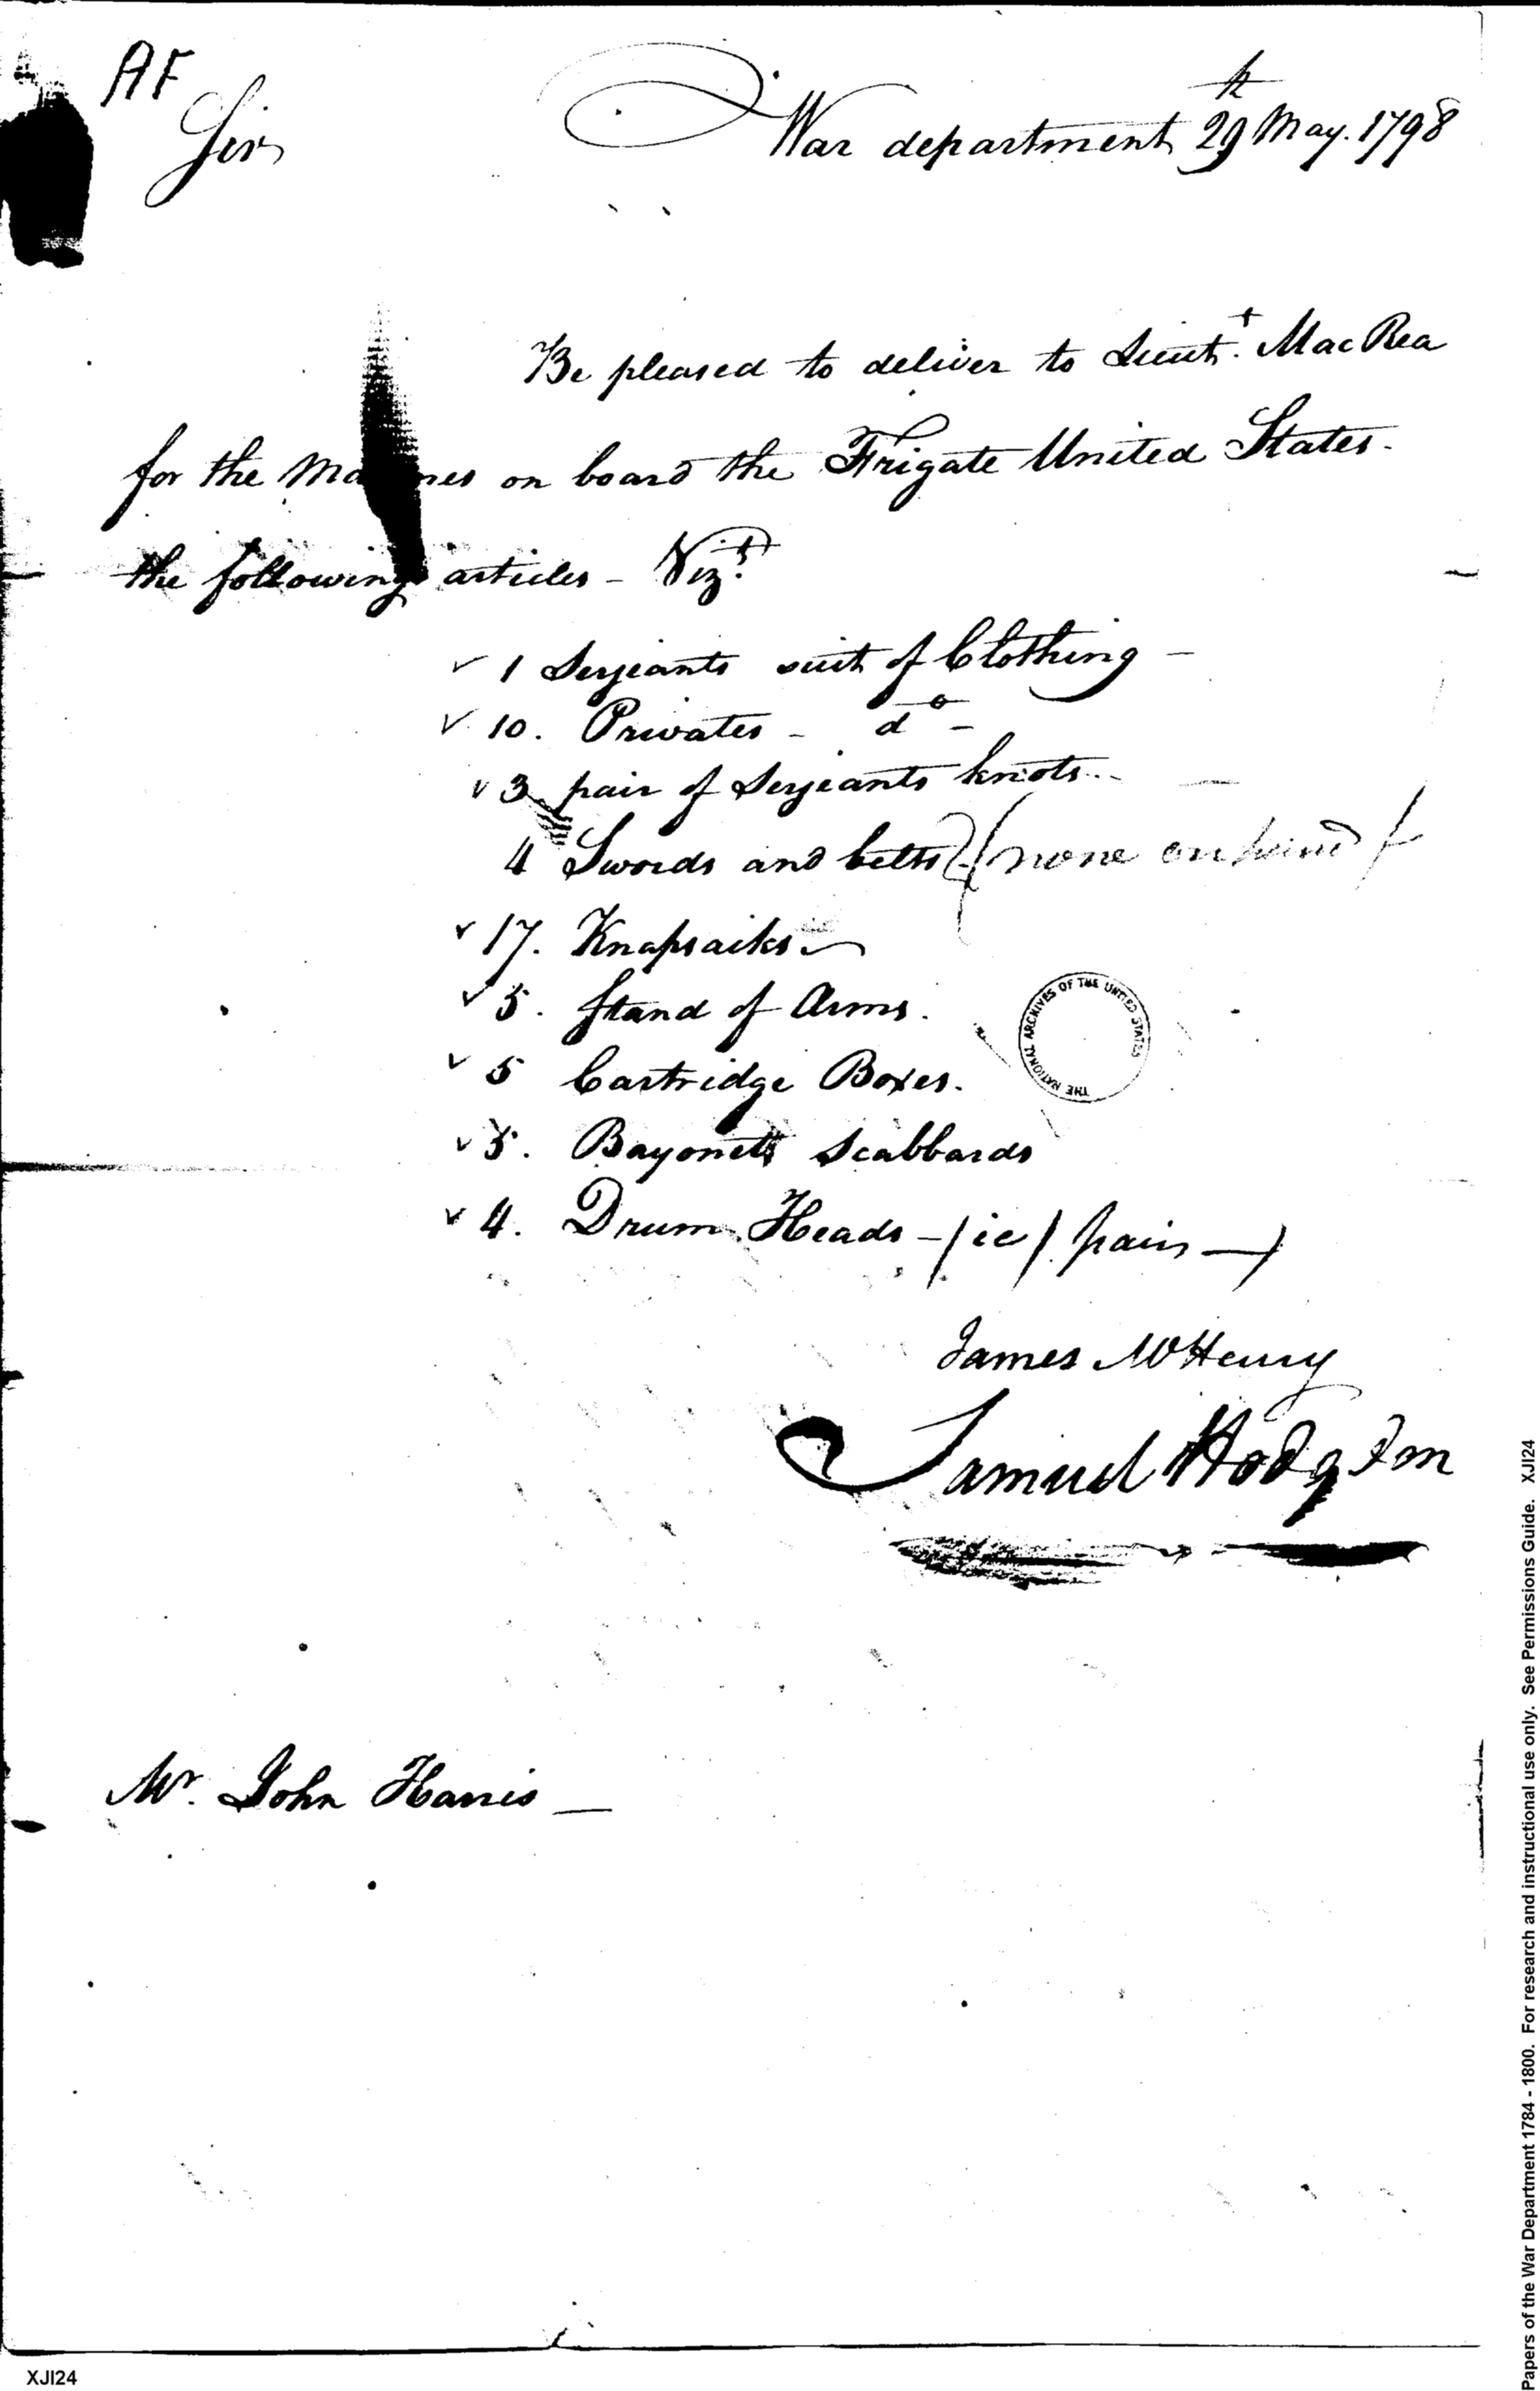 AF
Sir
War department 29th May. 1798
Be pleased to deliver to Lieut. MacRea
for the Ma nes on board the Frigate United States.
the following articles - Vizt.
✓ 1 Serjeants suit of Clothing -
✓ 10. Privates - do -
✓ 3 pair of Serjeants knots.. -
4 Swords and belts (none on hand)
✓ 17. Knapsacks
✓ 5. Stand of Arms.
✓ 5 Cartridge Boxes.
✓ 5. Bayonetts Scabbards
✓ 4. Drum Heads - (ie) pair -)
THE NATIONAL ARCHIVES OF THE UNITED STATES
James McHenry
Samuel Hodgdon
Mr. John Harris -
XJI24
Papers of the War Department 1784 - 1800. For research and instructional use only. See Permissions Guide. XJI24